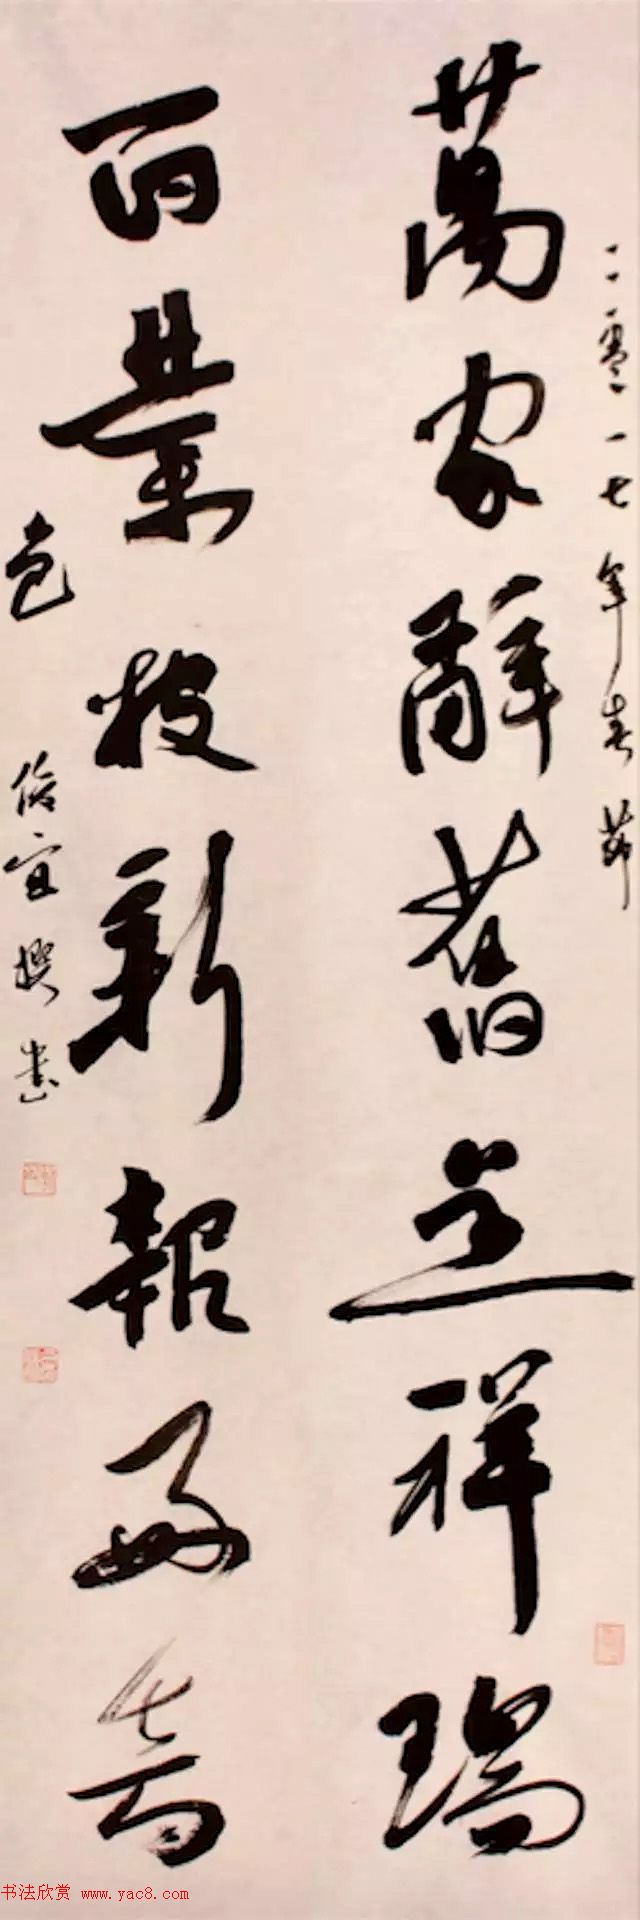 二零一七年春節
萬家辭舊呈祥瑞
百業披新報好音
包俊宜撰書
书法欣赏 www.yac8.com